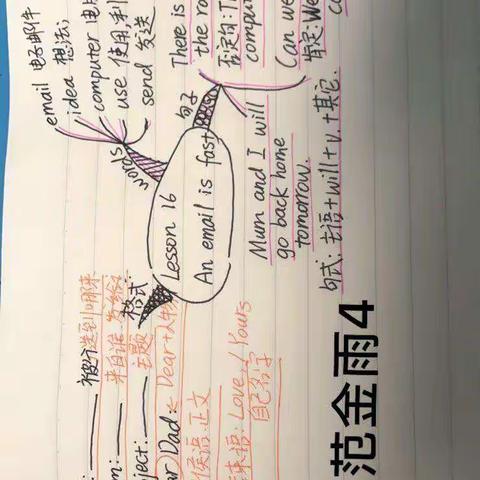 email 电子邮件
idea 想法;
computer 电
use 使用,利
send 发送
words
There is
the ro
否定句: T
comput
Can we
肯定: We
c
句子
Lesson 16
An email is fast
Mum and I will
go back home
tomorrow.
句式: 主语+will+v.+其它.
格式
来自谁
ject: 主题
ar Dad: Dear+人
候语.正文
Love / Yours
自己名字
范金雨4